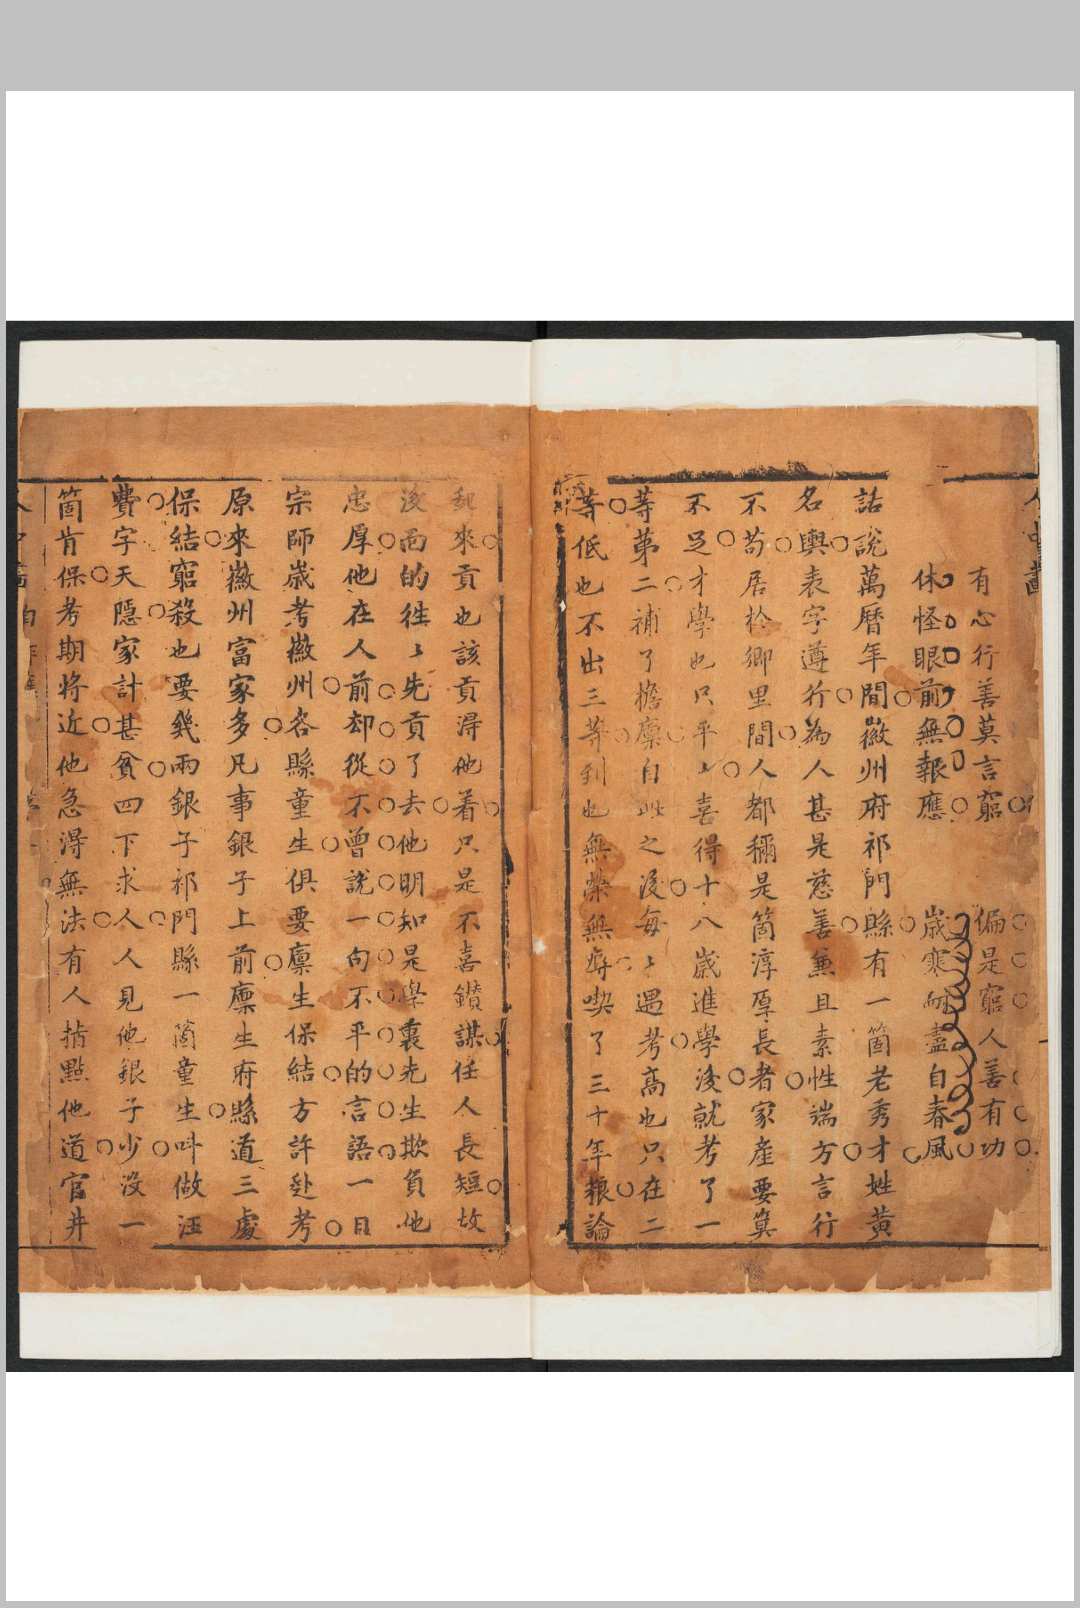 有心行善莫言窮　偏是窮人善有功
休怪眼前無報應　歲寒耐盡自春風
話說萬曆年間徽州府祁門縣有一箇老秀才姓黃
名輿表字遵行為人甚是慈善兼且素性端方言行
不苟居於鄉里間人都稱是箇淳厚長者家產要筭
不足才學也只平〻喜得十八歲進學後就考了一
等第二補了增廩自此之後每〻遇考高也只在二
等低也不出三等到也無榮無辱喫了三十年糧論
起來貢也該貢得他着只是不喜鑽謀任人長短故
後面的徃〻先貢了去他明知是學裏先生欺負他
忠厚他在人前却從不曾說一句不平的言語一日
宗師歲考徽州各縣童生俱要廩生保結方許赴考
原來徽州富家多凡事銀子上前廩生府縣道三處
保結窮殺也要幾兩銀子祁門縣一箇童生叫做汪
費字天隱家計甚貧四下求人人見他銀子少沒一
箇肯保考期將近他急得無法有人指點他道官井